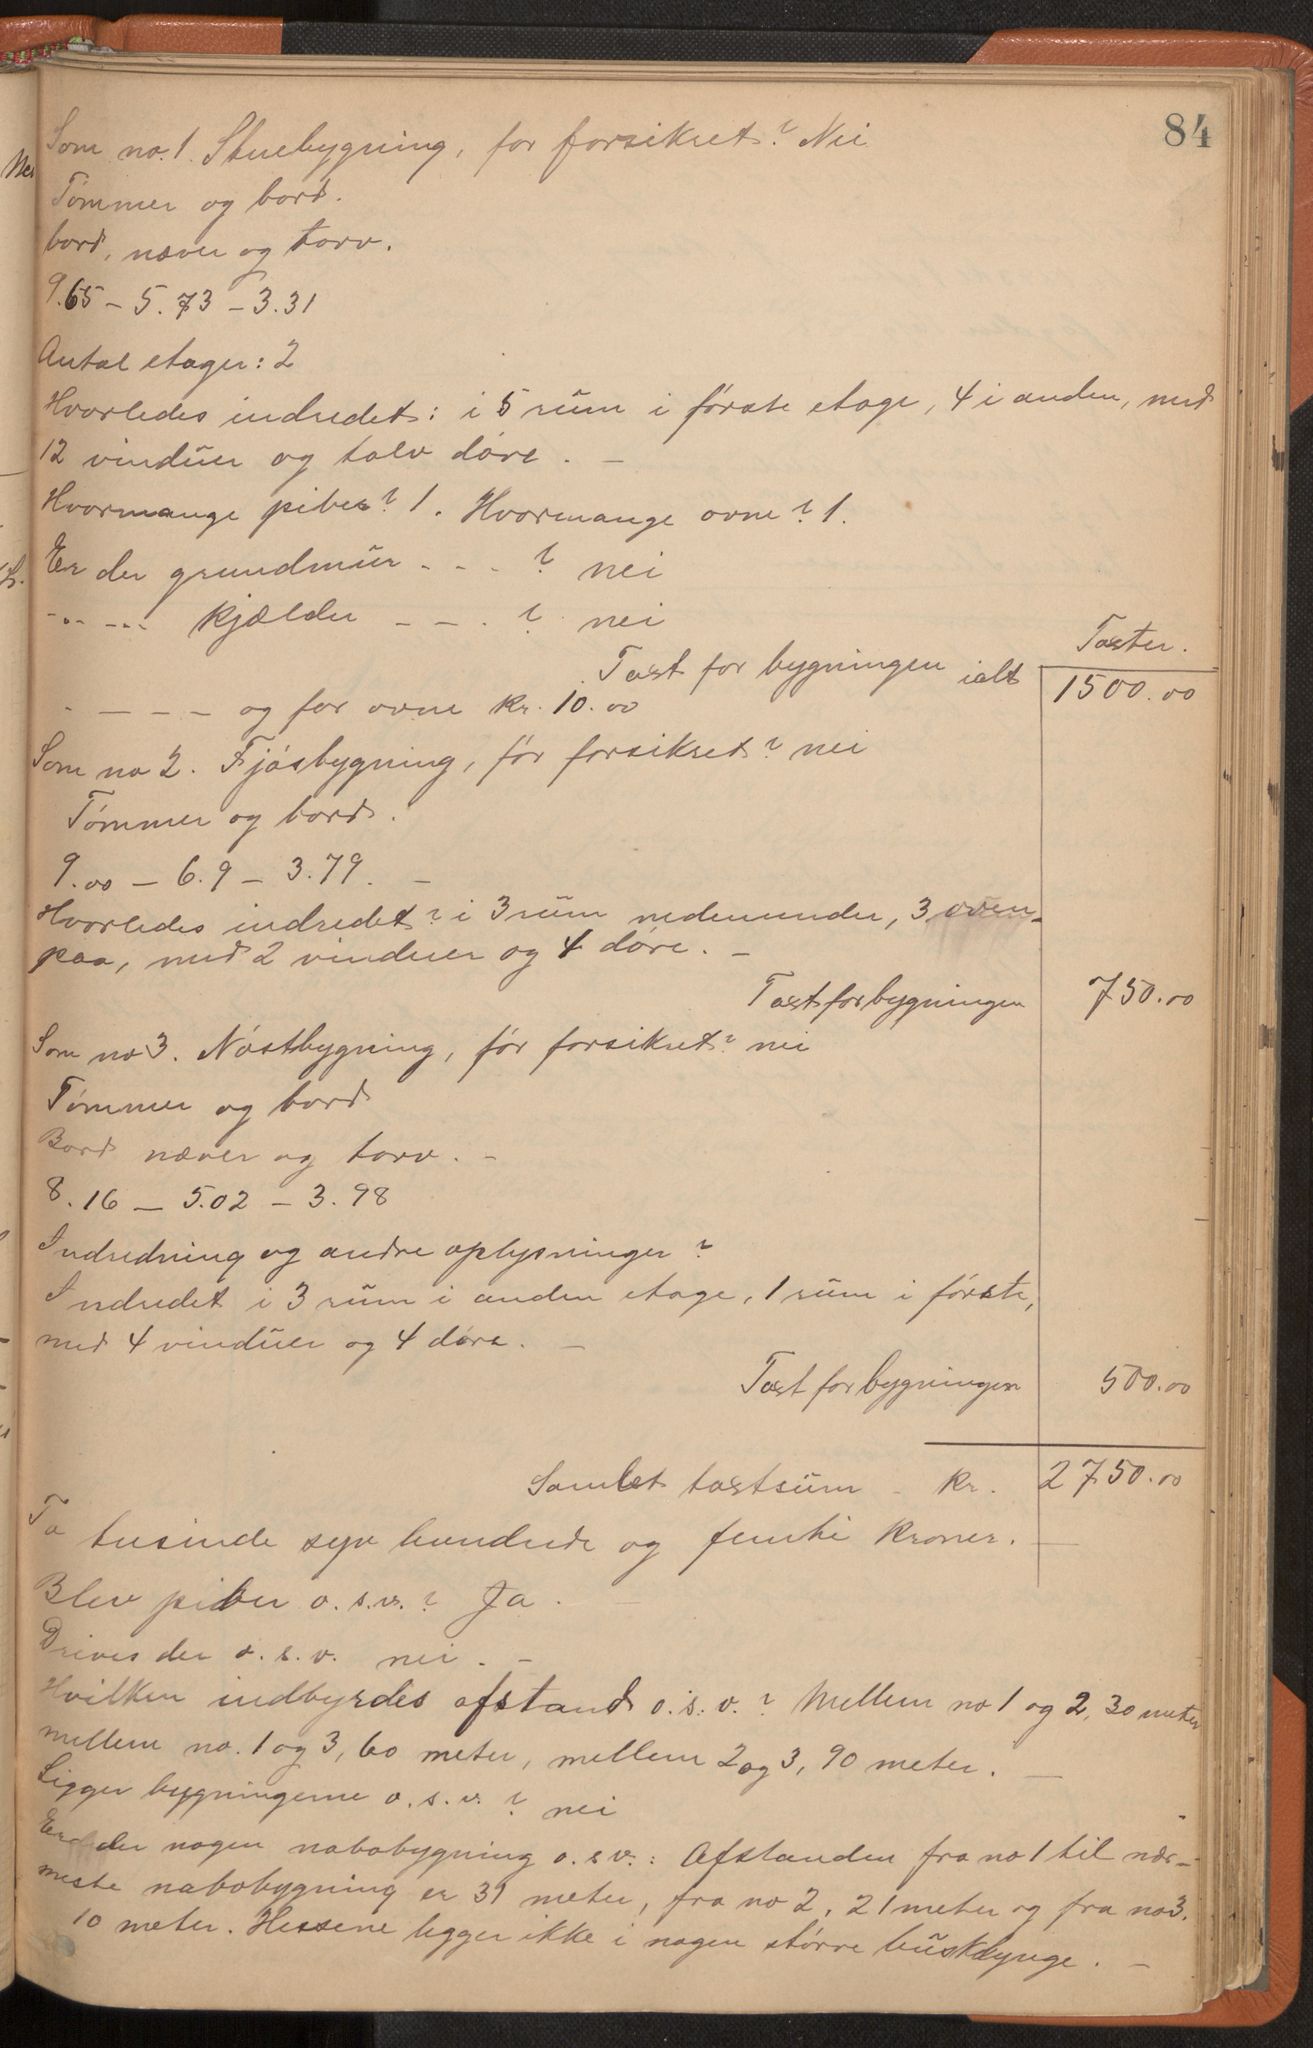 84
Som no. 1. Stuebygning, før forsikret? Nei
Tømmer og bord.
bord, næver og torv.
9.65 – 5.73 – 3.31
Antal etager: 2
Hvorledes indredet: i 5 rum i første etage, 4 i anden, med
12 vinduer og tolv døre. –
Hvormange piber? 1. Hvormange ovne? 1.
Er der grundmur - - - ? nei
-..- -..- kjælder – – - ? nei
Taxter.
Taxt for bygningen ialt 1500.00
- – – – og for ovne kr. 10.00
Som no 2. Fjøsbygning, før forsikret? nei
Tømmer og bord.
9.00 – 6.9 – 3.79. –
Hvorledes indredet? i 3 rum nedenunder, 3 oven-
paa, med 2 vinduer og 4 døre. –
Taxt for bygningen 750.00
Som no 3. Nøstbygning, før forsikret? nei
Tømmer og bord
Bord næver og torv. –
8.16 – 5.02 – 3.98
Indredning og andre oplysninger?
Indredet i 3 rum i anden etage, 1 rum i første,
med 4 vinduer og 4 døre. –
Taxt for bygningen 500.00
Samlet taxtsum - kr. 2750.00
To tusinde syv hundrede og femti kroner. –
Blev piber o.s.v.? Ja. –
Drives der o.s.v. nei. –
Hvilken indbyrdes afstand o.s.v.? Mellem no 1 og 2, 30 meter
mellem no. 1 og 3, 60 meter, mellem 2 og 3, 90 meter. –
Ligger bygningerne o.s.v.? nei
Er der nogen nabobygning o.s.v.: Afstanden fra no 1 til nær-
meste nabobygning er 31 meter, fra no 2, 21 meter og fra no 3.
10 meter. Husene ligger ikke i nogen større husklynge. –